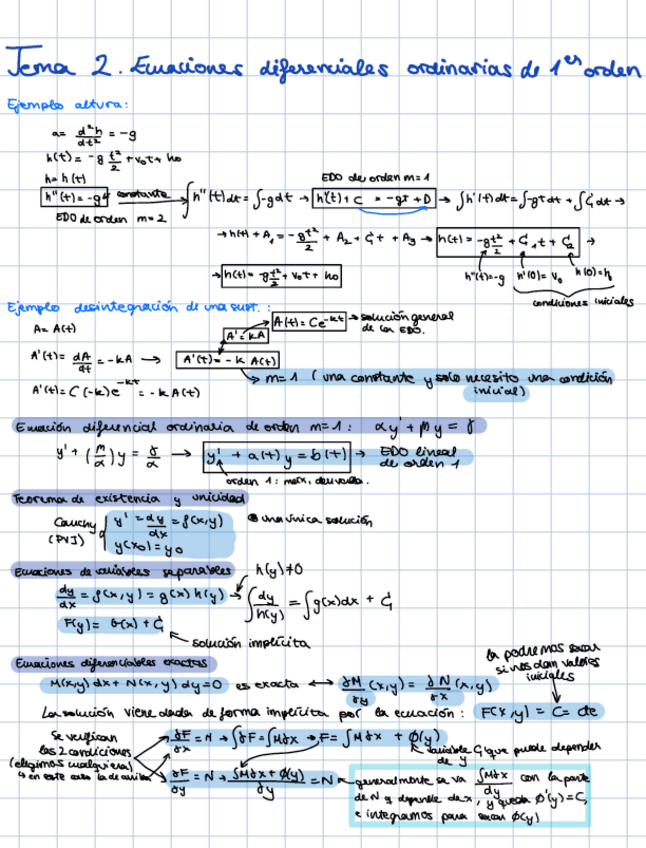 Tema 2. Ecuaciones diferenciales ordinarias de 1er orden
Ejemplo altura:
a = d²h/dt² = -g
h(t) = -g t²/2 + v₀t + h₀
h = h(t)
EDO de orden m=1
h''(t) = -g constante ∫h''(t)dt = ∫-gdt → h'(t) + C = -gt + D → ∫h'(t)dt = ∫-gtdt + ∫C₁dt →
EDO de orden m=2
→ h(t) + A₁ = -gt²/2 + A₂ + C₁t + A₃ → h(t) = -gt²/2 + C₁t + C₂ →
h''(t) = -g h'(0) = v₀ h(0) = h₀
→ h(t) = -gt²/2 + v₀t + h₀
condiciones iniciales
Ejemplo desintegración de una sust.:
A = A(t)
A(t) = Ce^-kt → solución general de la EDO.
A' = kA
A'(t) = dA/dt = -kA → A'(t) = -k A(t)
m=1 (una constante y solo necesito una condición inicial)
A'(t) = C(-k)e^-kt = -kA(t)
Ecuación diferencial ordinaria de orden m=1: αy' + βy = γ
y' + (β/α)y = γ/α → y' + a(t)y = b(t) → EDO lineal de orden 1
orden 1: max. derivada.
Teorema de existencia y unicidad
Cauchy (PVI) { y' = dy/dx = f(x,y)
una única solución
y(x₀) = y₀
Ecuaciones de variables separables
h(y)≠0
dy/dx = f(x,y) = g(x) h(y) → ∫dy/h(y) = ∫g(x)dx + C₁
F(y) = G(x) + C₁
solución implícita
Ecuaciones diferenciables exactas
la podremos sacar si nos dan valores iniciales
M(x,y)dx + N(x,y)dy = 0 es exacta ↔ ∂M/∂y (x,y) = ∂N/∂x (x,y)
La solución viene dada de forma implícita por la ecuación: F(x,y) = C = cte
Se verifican las 2 condiciones (elegimos cualquiera)
∂F/∂x = M → ∫∂F = ∫M∂x → F = ∫M∂x + ϕ(y)
variable C₁ que puede depender de y
en este caso la de arriba
∂F/∂y = N → ∫M∂x + ϕ(y)/∂y = N
generalmente se va ∫M∂x/dy con la parte
de N q depende de x, y queda ϕ'(y) = C₁
e integramos para sacar ϕ(y)